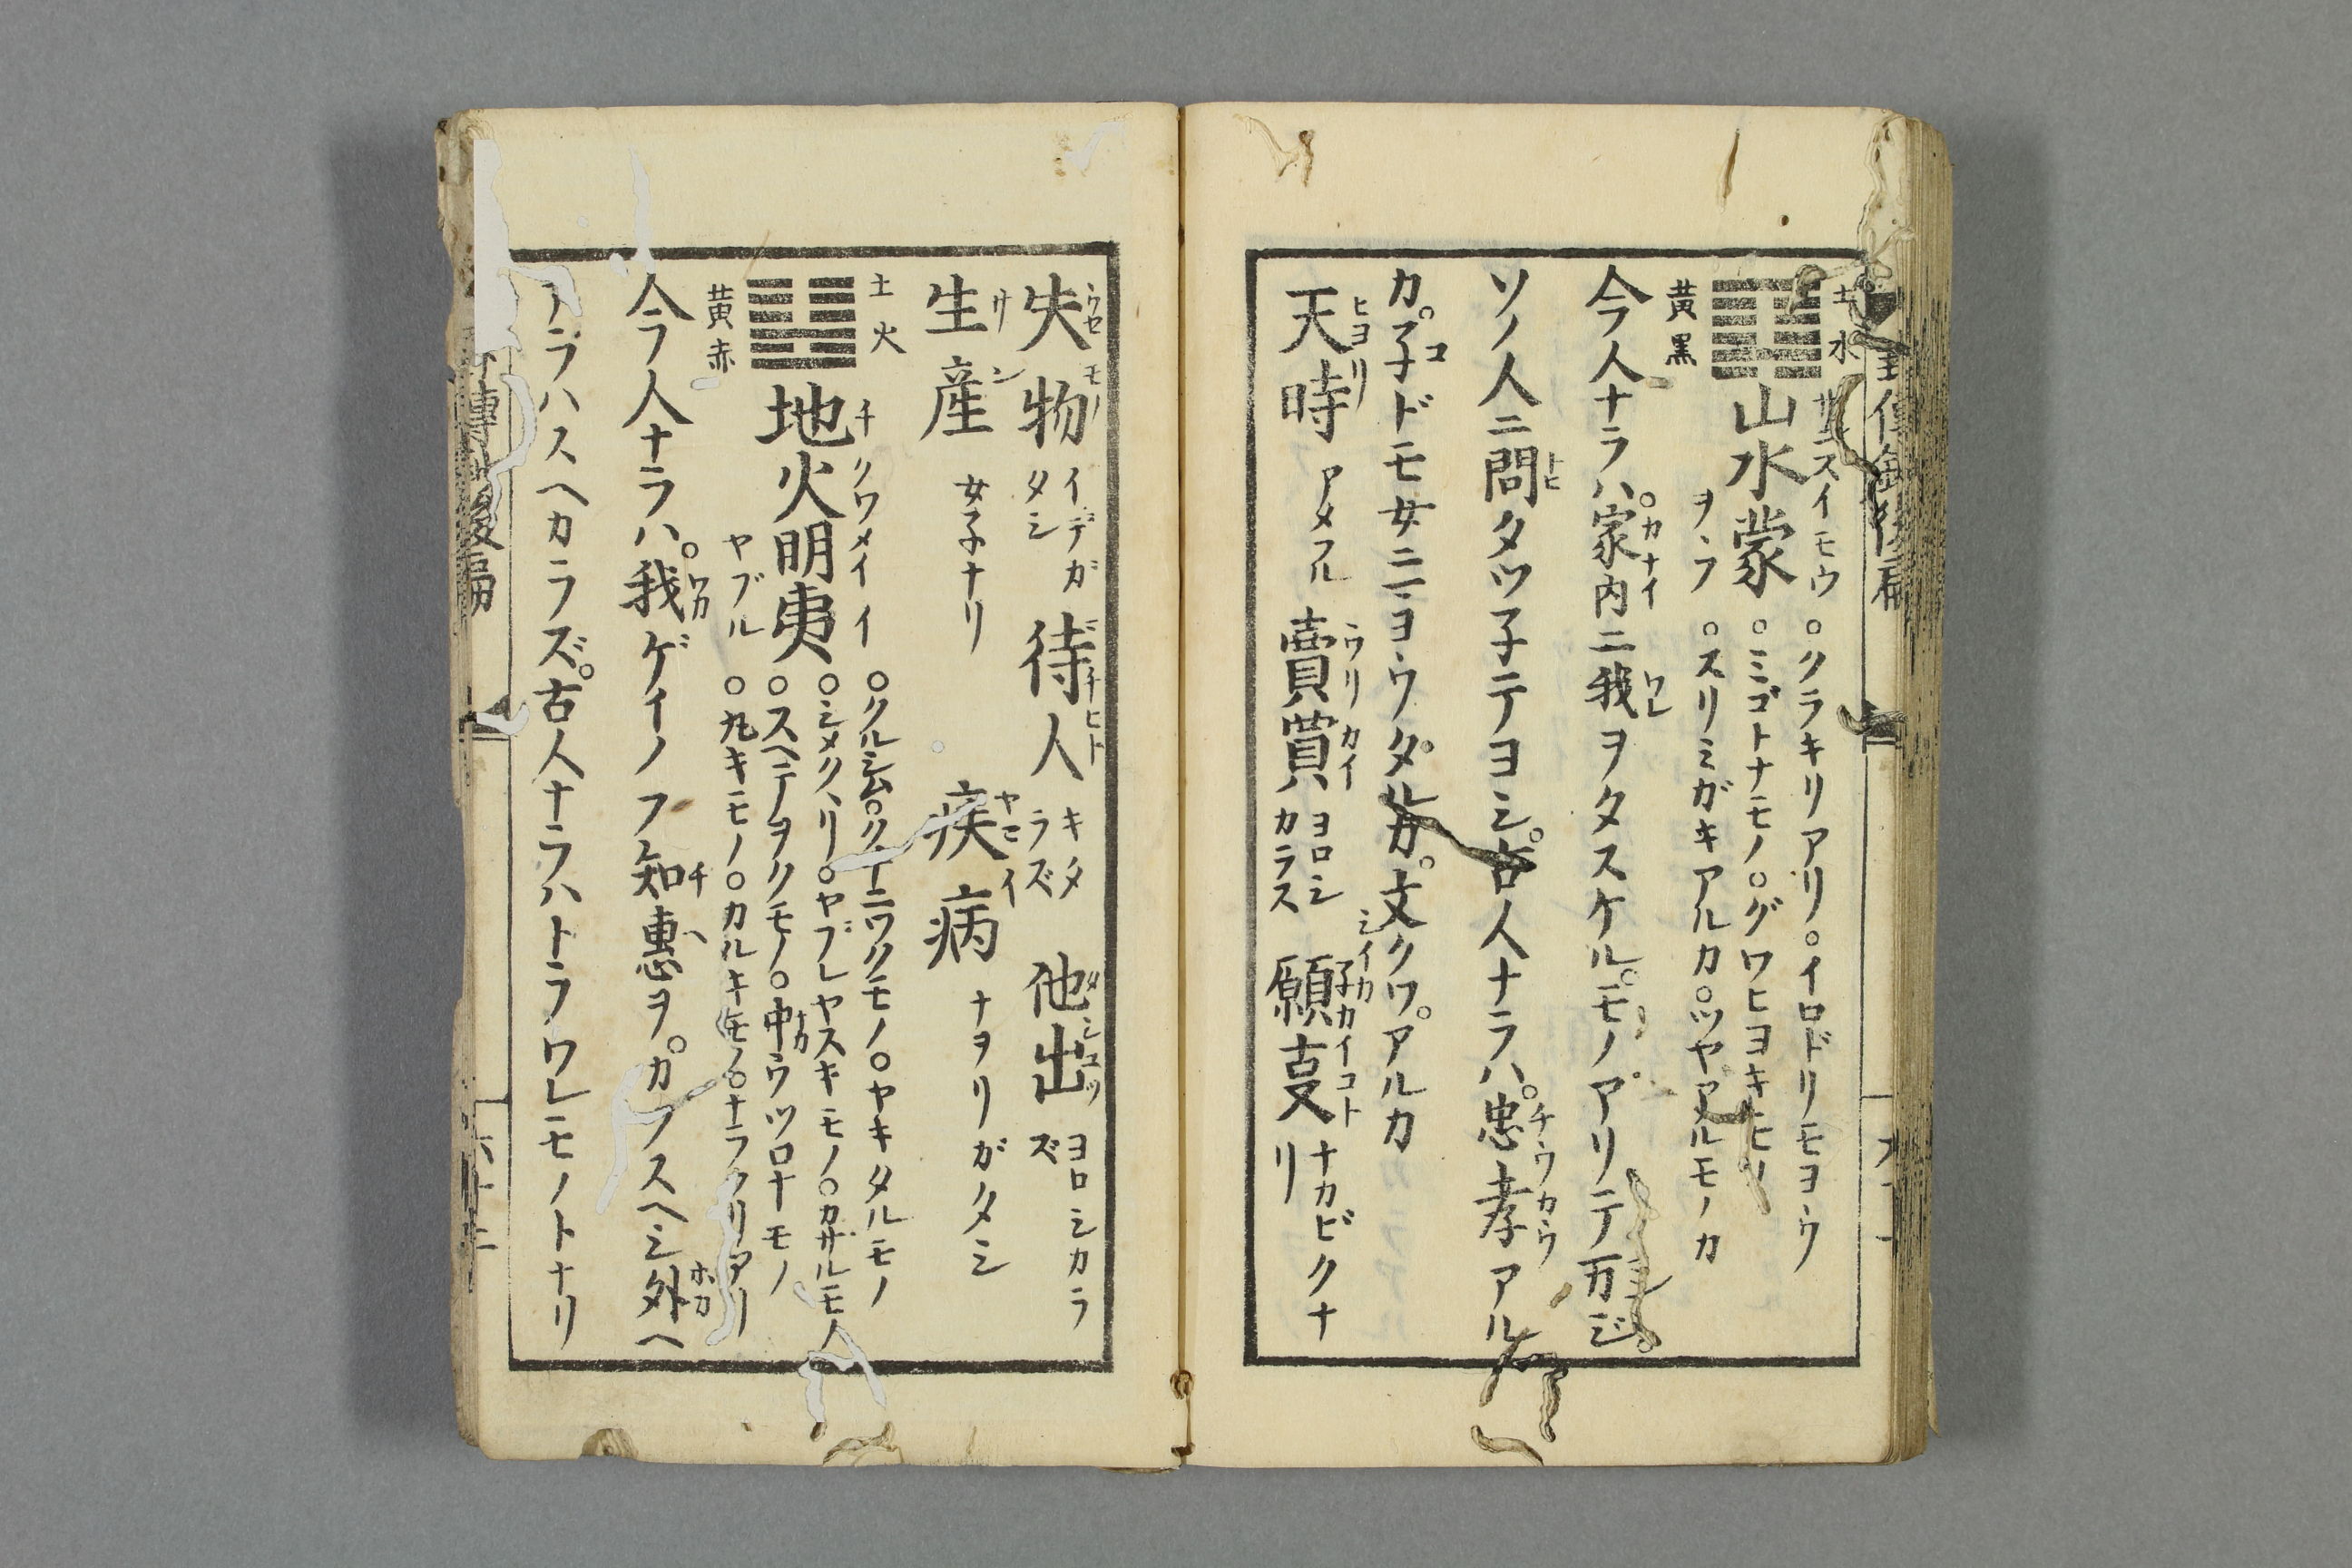 土水
山水蒙
サンスイモウ
ヲヽフ
黄黒
○クラキリアリ○イロドリモヨウ
○ミゴトナモノ○グワヒヨキヒリ
○スリミガキアルカ○ツヤアルモノカ
今人ナラハ○家内ニ我ヲタスケル○モノアリテ万ジ○
ソノ人ニ問タツ子テヨシ○古人ナラハ○忠孝アル
カ○子ドモ女ニヨヽウタルカ○文クワ○アルカ
天時 アメフル 賣買 ヨロシカラス 願支 ナカビクナリ
失物 イデガタシ 待人 キタラズ 他出 ヨロシカラズ
生産 女子ナリ 疾病 ナヲリガタシ
土火
地火明夷
チクワメイイ
ヤブル
黄赤
○クルシム○クチニワクモノ○ヤキタルモノ
○シメクヽリ○ヤブレヤスキモノ○カザルモノ
○スヘテヲクモノ○中ウツロナモノ
○丸キモノ○カルキモノ○ナラクリアリ
今人ナラハ○我ゲイノフ知恵ヲ○カクスヘシ外ヘ
アラハスヘカラズ○古人ナラハトラワレモノトナリ